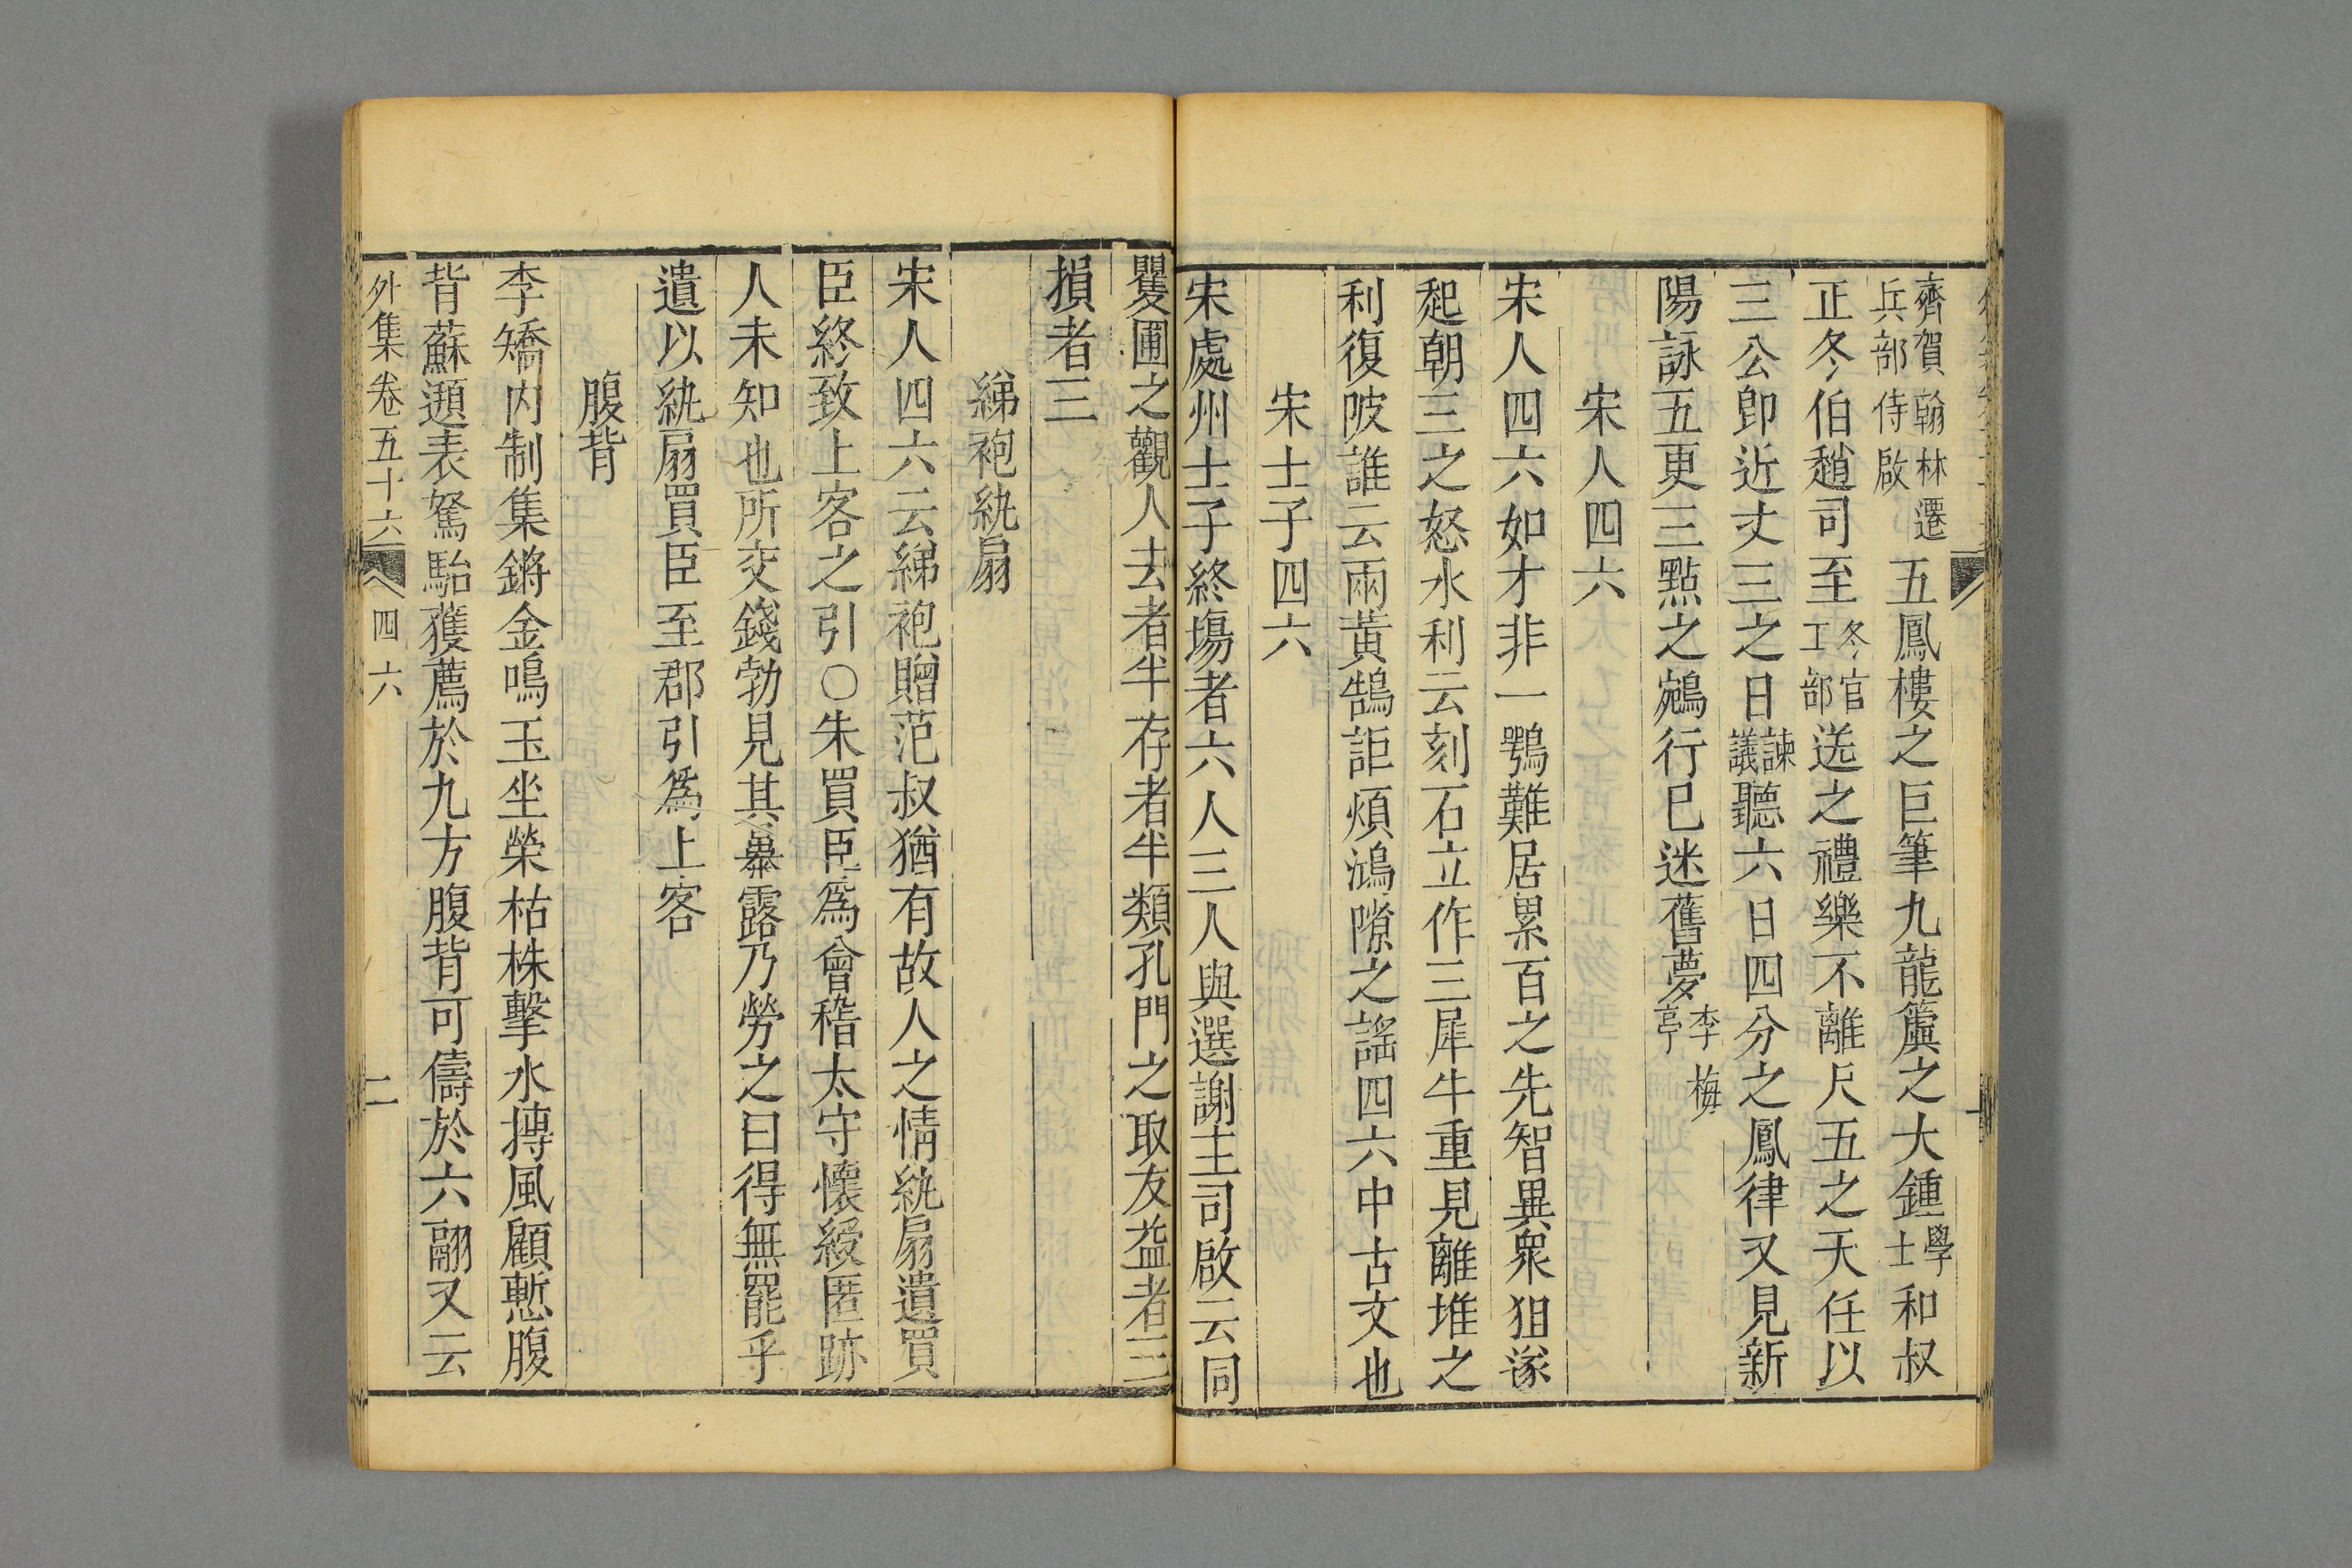 齊賀翰林遷兵部侍啟五鳳樓之巨筆九龍簴之大鍾學士和叔
正冬伯趙司至冬官工部送之禮樂不離尺五之天任以
三公即近丈三之日諫議聽六日四分之鳳律又見新
陽詠五更三點之鵷行已迷舊夢李梅亭
宋人四六
宋人四六如才非一鶚難居累百之先智異衆狙遂
起朝三之怒水利云刻石立作三犀牛重見離堆之
利復陂誰云兩黃鵠詎煩鴻隙之謠四六中古文也
宋士子四六
宋處州士子終場者六人三人與選謝主司啟云同
矍圃之觀人去者半存者半類孔門之取友益者三
損者三
綈袍紈扇
宋人四六云綈袍贈范叔猶有故人之情紈扇遺買
臣終致上客之引○朱買臣為會稽太守懷綬匿跡
人未知也所交錢勃見其暴露乃勞之曰得無罷乎
遺以紈扇買臣至郡引為上客
腹背
李矯內制集鏘金鳴玉坐榮枯株擊水摶風顧慙腹
背蘇頲表駑駘獲薦於九方腹背可儔於六翮又云
外集卷五十六 四六 二